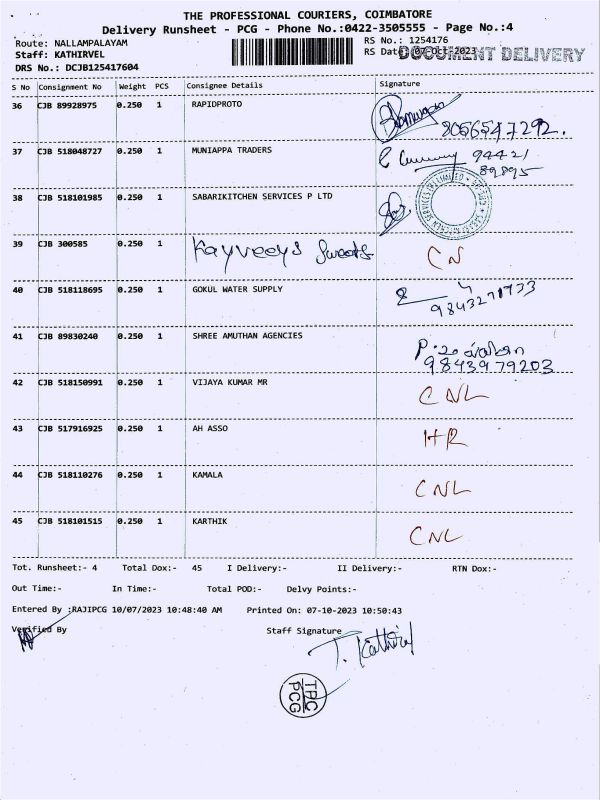 THE PROFESSIONAL COURIERS, COIMBATORE
Delivery Runsheet - PCG - Phone No.:0422-3505555 - Page No.:4
Route: NALLAMPALAYAM RS No.: 1254176
Staff: KATHIRVEL RS Date: 07 Oct 2023 DOCUMENT DELIVERY
DRS No.: DCJB125417604
S No Consignment No Weight PCS Consignee Details Signature
36 CJB 89928975 0.250 1 RAPIDPROTO 8056547292.
37 CJB 518048727 0.250 1 MUNIAPPA TRADERS 94421
89895
38 CJB 518101985 0.250 1 SABARIKITCHEN SERVICES P LTD
39 CJB 300585 0.250 1 Kayveeys Sweets CN
40 CJB 518118695 0.250 1 GOKUL WATER SUPPLY
41 CJB 89830240 0.250 1 SHREE AMUTHAN AGENCIES
9843979203
42 CJB 518150991 0.250 1 VIJAYA KUMAR MR CNL
43 CJB 517916925 0.250 1 AH ASSO HR
44 CJB 518110276 0.250 1 KAMALA CNL
45 CJB 518101515 0.250 1 KARTHIK CNL
Tot. Runsheet:- 4 Total Dox:- 45 I Delivery:- II Delivery:- RTN Dox:-
Out Time:- In Time:- Total POD:- Delvy Points:-
Entered By :RAJIPCG 10/07/2023 10:48:40 AM Printed On: 07-10-2023 10:50:43
Verified By Staff Signature
T. Kathirvel
TPC
PCG